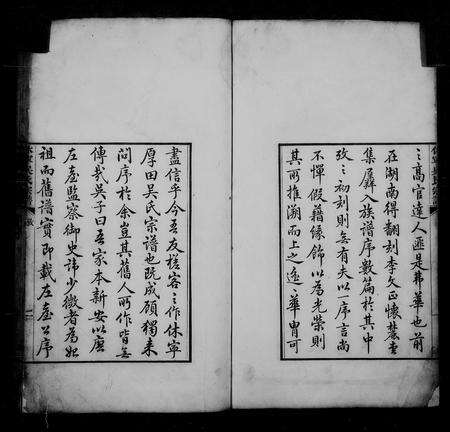 之高官達人匪是弗華也前
在湖南得翻刻李文正懷麓堂
集孱入族譜序數篇於其中
攷之初刻則無有夫以一序言尚
不憚假藉緣飾以為光榮則
其所推溯而上之遙遙華冑可
盡信乎今吾友槎客之作休寧
厚田吳氏宗譜也既成顧獨來
問序於余豈其舊人所作皆無
傳哉吳子曰吾家本新安以唐
左臺監察御史諱少微者為始
祖而舊譜實即載左臺公序